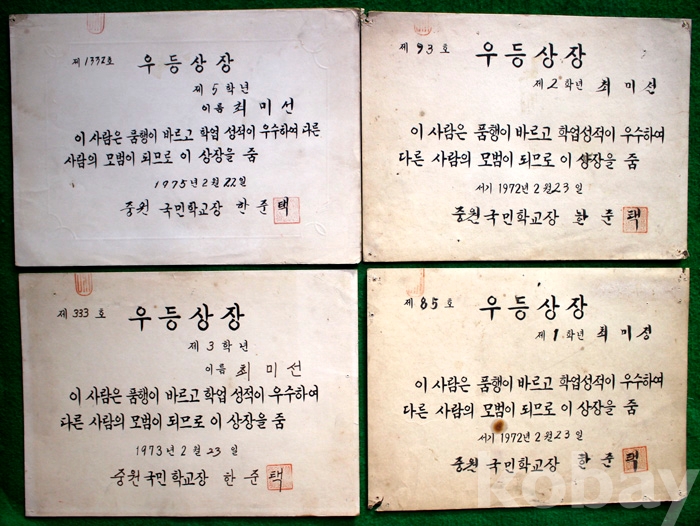 제 1332호
우등상장
제 5 학년
이름 최미선
이 사람은 품행이 바르고 학업 성적이 우수하여 다른
사람의 모범이 되므로 이 상장을 줌
1975년 2월 22일
중원 국민학교장 한준택
제 93 호
우등상장
제 2 학년 최미선
이 사람은 품행이 바르고 학업성적이 우수하여
다른 사람의 모범이 되므로 이 상장을 줌
서기 1972년 2월 23일
중원 국민학교장 한준택
제 333 호
우등상장
제 3 학년
이름 최미선
이 사람은 품행이 바르고 학업 성적이 우수하여
다른 사람의 모범이 되므로 이 상장을 줌
1973년 2월 23일
중원 국민학교장 한준택
제 85 호
우등상장
제 1 학년 최미정
이 사람은 품행이 바르고 학업성적이 우수하여
다른 사람의 모범이 되므로 이 상장을 줌
서기 1972년 2월 23일
중원 국민학교장 한준택
kobay